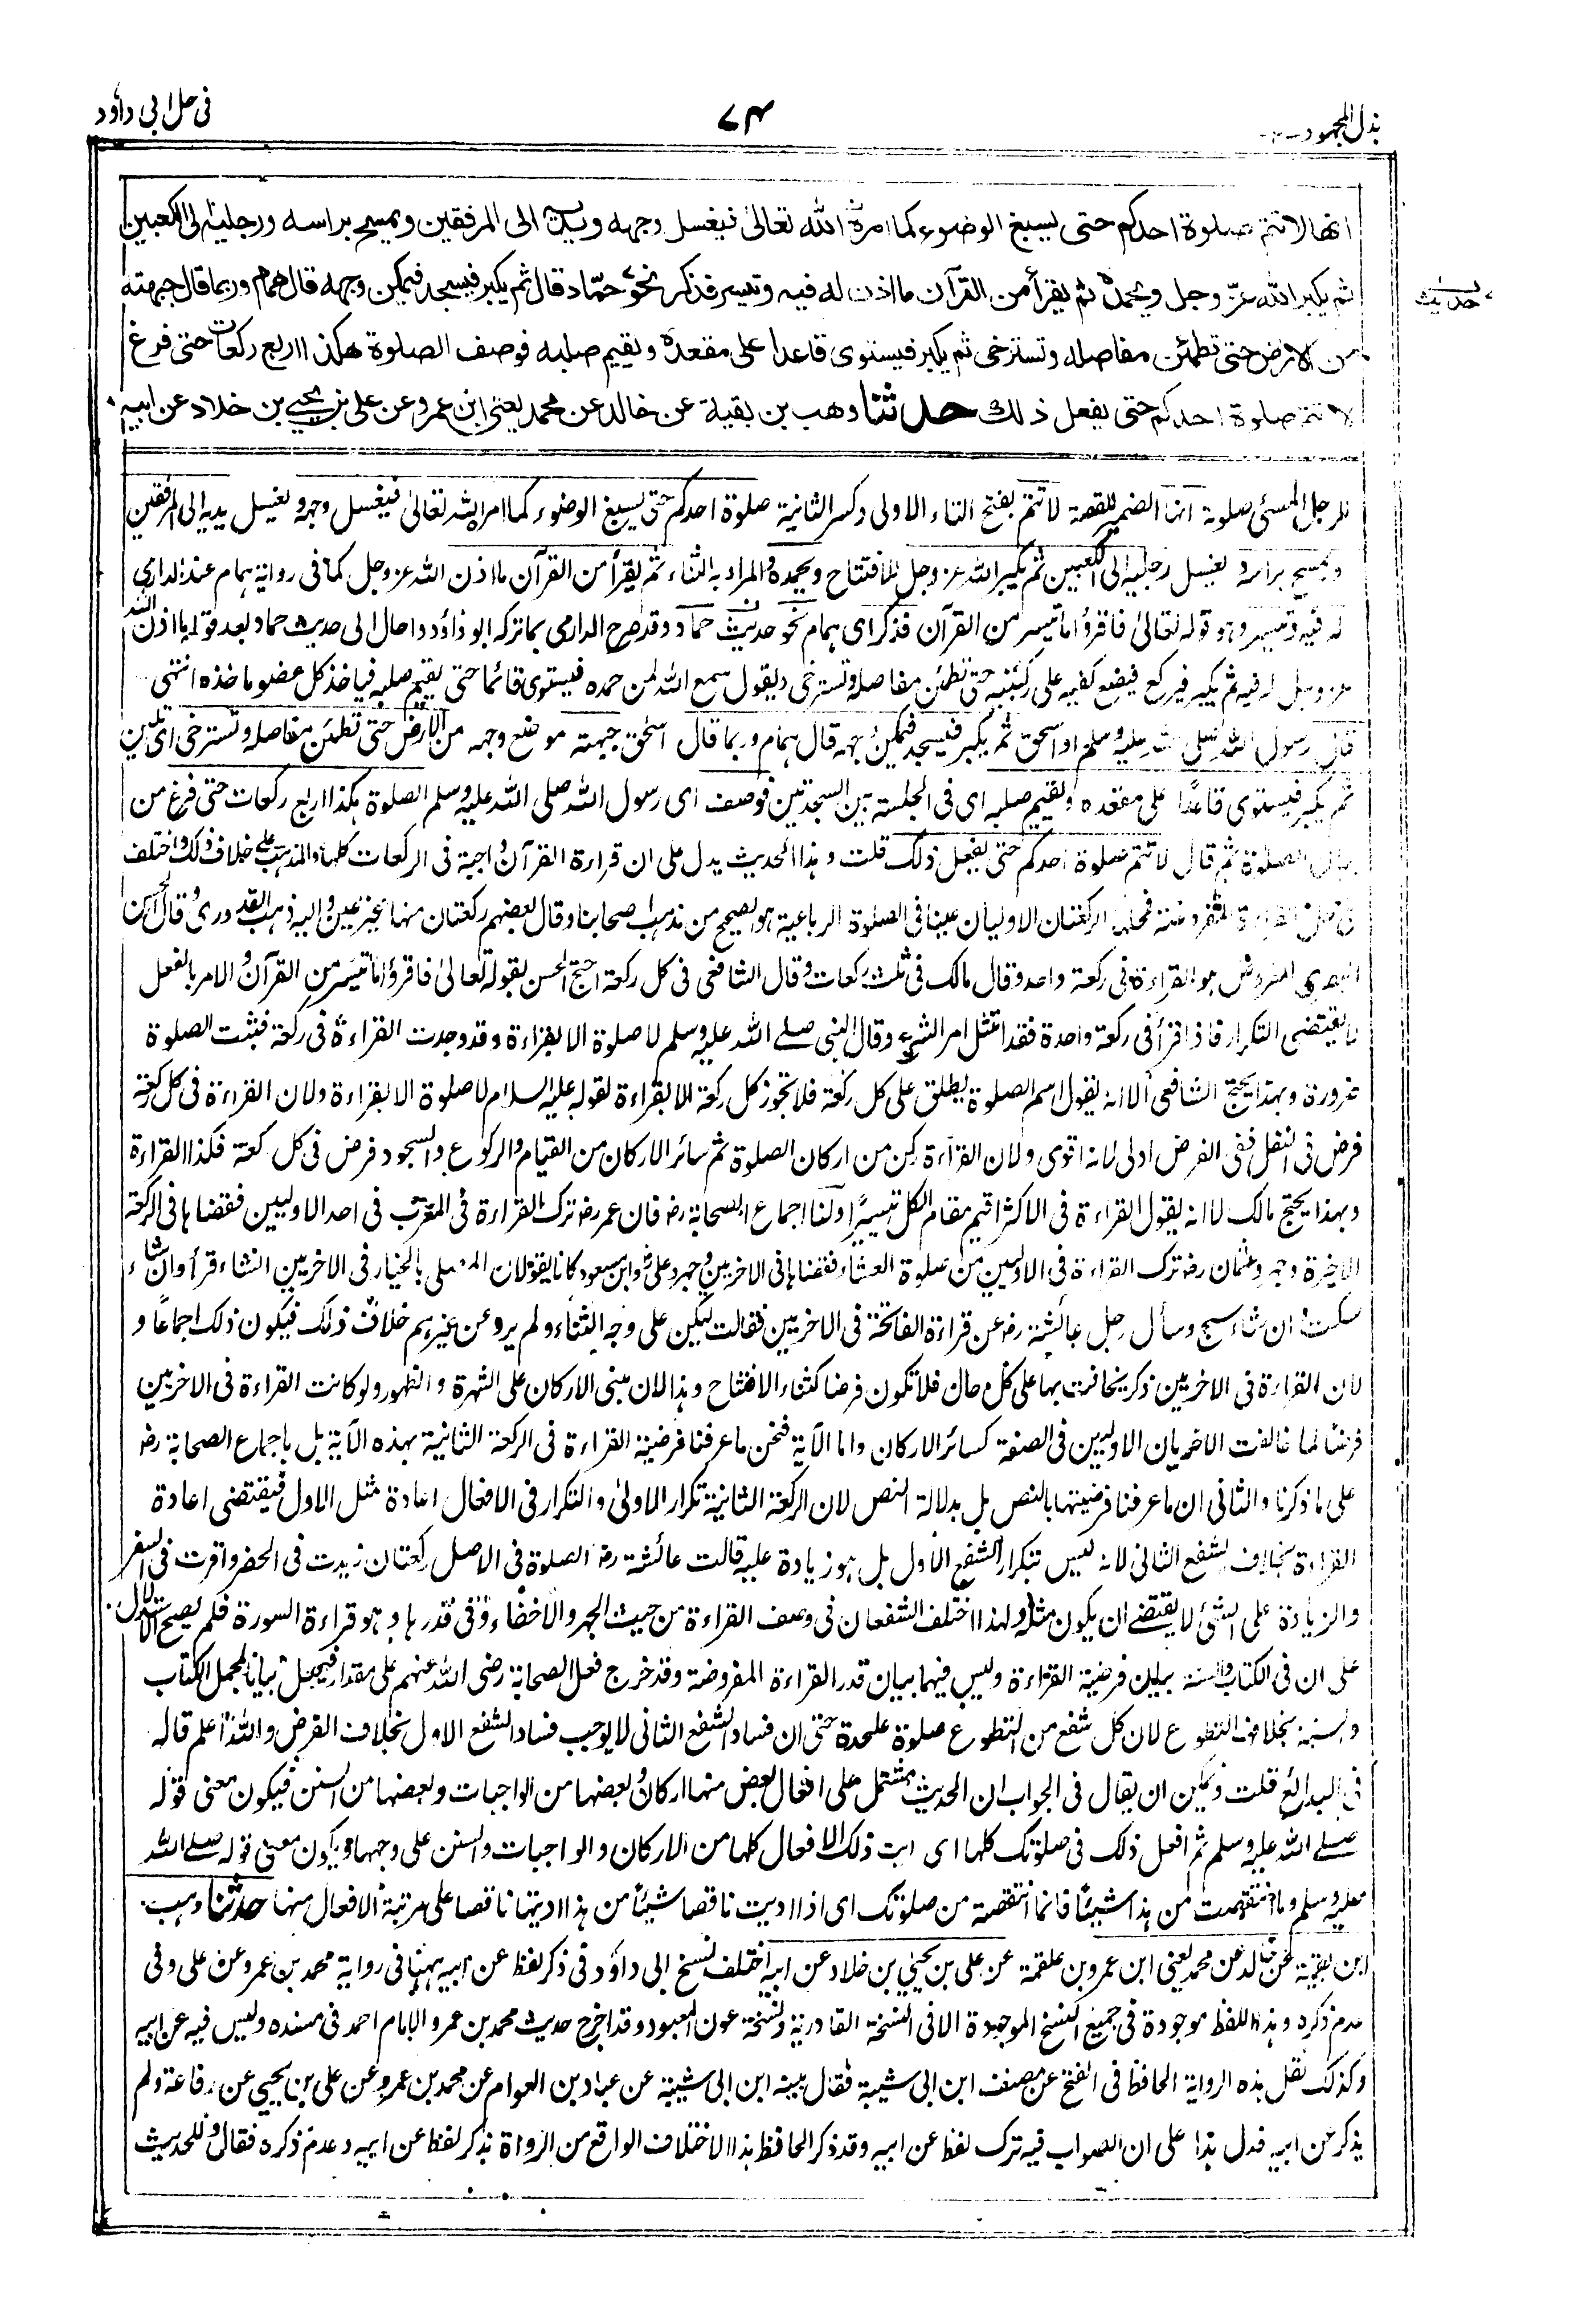 بذل المجهود
٧٤
في حل ابي داؤد
انها لا تتم صلوة احدكم حتى يسبغ الوضوء كما امره الله تعالى فيغسل وجهه ويديه الى المرفقين ويمسح براسه ورجليه الى الكعبين
ثم يكبر الله عزّ وجل ويحمده ثم يقرأ من القرآن ما اذن له فيه وتيسر فذكر نحو حمّاد قال ثم يكبر فيسجد فيمكن وجهه قال همام وربما قال جبهته
من الارض حتى تطمئن مفاصله وتسترخى ثم يكبر فيستوى قاعدا على مقعده ويقيم صلبه فوصف الصلوة هكذا اربع ركعات حتى فرغ
لا تتم صلوة احدكم حتى يفعل ذلك حدثنا وهب بن بقية عن خالد عن محمد يعنى ابن عمرو عن على بن يحيى بن خلاد عن ابيه
حديث
للرجل المسئ صلوته انها الضمير للقصة لا تتم بفتح التاء الاولى وكسر الثانية صلوة احدكم حتى يسبغ الوضوء كما امر الله تعالى فيغسل وجهه ويغسل يديه الى المرفقين
ويمسح براسه ويغسل رجليه الى الكعبين ثم يكبر الله عز وجل للافتتاح ويحمده والمراد به الثناء ثم يقرأ من القرآن ما اذن الله عز وجل كما فى رواية همام عند الدارمى
له فيه وتيسر وهو قوله تعالى فاقرؤا ما تيسر من القرآن فذكر اى همام نحو حديث حماد وقد صرح الدارمى بما تركه ابو داؤد واحال الى حديث حماد بعد قوله ما اذن الله
عز وجل له فيه ثم يكبر فيركع فيضع كفيه على ركبتيه حتى تطمئن مفاصله وتسترخى ويقول سمع الله لمن حمده فيستوى قائما حتى يقيم صلبه فياخذ كل عضو ماخذه انتهى
قال رسول الله صلى الله عليه وسلم او اسحق ثم يكبر فيسجد فيمكن وجهه قال همام وربما قال اسحق جبهته موضع وجهه من الارض حتى تطمئن مفاصله وتسترخى اى تلين
ثم يكبر فيستوى قاعدًا على مقعده ويقيم صلبه اى فى الجلسة بين السجدتين فوصف اى رسول الله صلى الله عليه وسلم الصلوة هكذا اربع ركعات حتى فرغ من
بيان الصلوة ثم قال لا تتم صلوة احدكم حتى يفعل ذلك قلت وهذا الحديث يدل على ان قراءة القرآن واجبة فى الركعات كلها والمذهب على خلاف ذلك واختلف
فى محل القراءة المفروضة فمحلها الركعتان الاوليان عينا فى الصلوة الرباعية هو الصحيح من مذهب اصحابنا وقال بعضهم ركعتان منها غير عين واليه ذهب القدورى وقال الحسن
البصرى المفروض هو القراءة فى ركعة واحدة وقال مالك فى ثلث ركعات وقال الشافعى فى كل ركعة احتج الحسن بقوله تعالى فاقرؤا ما تيسر من القرآن والامر بالفعل
لا يقتضى التكرار فاذا قرأ فى ركعة واحدة فقد امتثل امر الشرع وقال النبى صلى الله عليه وسلم لا صلوة الا بقراءة وقد وجدت القراءة فى ركعة فثبتت الصلوة
ضرورة وبهذا يحتج الشافعى الا انه يقول اسم الصلوة يطلق على كل ركعة فلا تجوز كل ركعة الا بقراءة لقوله عليه السلام لا صلوة الا بقراءة ولان القراءة فى كل ركعة
فرض فى النفل ففى الفرض اولى لانه اقوى ولان القراءة ركن من اركان الصلوة ثم سائر الاركان من القيام والركوع والسجود فرض فى كل ركعة فكذا القراءة
وبهذا يحتج مالك الا انه يقول القراءة فى الاكثر اقيم مقام الكل تيسيرًا ولنا اجماع الصحابة رض فان عمر رض ترك القراءة فى المغرب فى احد الاوليين فقضاها فى الركعة
الاخيرة وجهر وعثمان رض ترك القراءة فى الاوليين من صلوة العشاء فقضاها فى الاخريين وجهر وعلى وابن مسعود كانا يقولان المصلى بالخيار فى الاخريين ان شاء قرأ وان شاء
سكت وان شاء سبح وسأل رجل عائشة رض عن قراءة الفاتحة فى الاخريين فقالت ليكن على وجه الثناء ولم يرو عن غيرهم خلاف ذلك فيكون ذلك اجماعًا و
لان القراءة فى الاخريين ذكر يخافت بها على كل حال فلا تكون فرضا كثناء الافتتاح وهذا لان مبنى الاركان على الشهرة والظهور ولو كانت القراءة فى الاخريين
فرضًا لما خالفت الاخريان الاوليين فى الصفة كسائر الاركان واما الآية فنحن ما عرفنا فرضية القراءة فى الركعة الثانية بهذه الآية بل باجماع الصحابة رض
على ما ذكرنا والثانى ان ما عرفنا فرضيتها بالنص بل بدلالة النص لان الركعة الثانية تكرار الاولى والتكرار فى الافعال اعادة مثل الاول فيقتضى اعادة
القراءة بخلاف الشفع الثانى لانه ليس تكرار الشفع الاول بل هو زيادة عليه قالت عائشة رض الصلوة فى الاصل ركعتان زيدت فى الحضر واقرت فى السفر
والزيادة على الشئ لا يقتضى ان يكون مثله ولهذا اختلف الشفعان فى وصف القراءة من حيث الجهر والاخفاء وفى قدرها وهو قراءة السورة فلم يصح الاستدلال
على ان فى الكتاب والسنة بيان فرضية القراءة وليس فيهما بيان قدر القراءة المفروضة وقد خرج فعل الصحابة رضى الله عنهم على مقدار فيجعل بيانا لمجمل الكتاب
والسنة بخلاف التطوع لان كل شفع من التطوع صلوة علحدة حتى ان فساد الشفع الثانى لا يوجب فساد الشفع الاول بخلاف الفرض والله اعلم قاله
فى البدائع قلت ويمكن ان يقال فى الجواب ان الحديث مشتمل على افعال بعض منها اركان وبعضها من الواجبات وبعضها من السنن فيكون معنى قوله
صلى الله عليه وسلم ثم افعل ذلك فى صلوتك كلها اى ايت ذلك الافعال كلها من الاركان والواجبات والسنن على وجهها ويكون معنى قوله صلى الله
عليه وسلم وما انتقصت من هذا شيئًا فانما انتقصته من صلوتك اى اذا اديت ناقصا شيئًا من هذا اديتها ناقصا على مرتبة الافعال منها حدثنا وهب
ابن بقية عن خالد عن محمد يعنى ابن عمرو بن علقمة عن على بن يحيى بن خلاد عن ابيه اختلف نسخ ابى داؤد فى ذكر لفظ عن ابيه ههنا فى رواية محمد بن عمرو عن على وفى
عدم ذكره وهذا اللفظ موجودة فى جميع النسخ الموجودة الا فى النسخة القادرية ونسخة عون المعبود وقد اخرج حديث محمد بن عمرو الامام احمد فى مسنده وليس فيه عن ابيه
وكذلك نقل هذه الرواية الحافظ فى الفتح عن مصنف ابن ابى شيبة فقال بينه ابن ابى شيبة عن عباد بن العوام عن محمد بن عمرو عن على بن يحيى عن رفاعة ولم
يذكر عن ابيه فدل هذا على ان الصواب فيه ترك لفظ عن ابيه وقد ذكر الحافظ هذا الاختلاف الواقع من الرواة بذكر لفظ عن ابيه وعدم ذكره فقال وللحديث